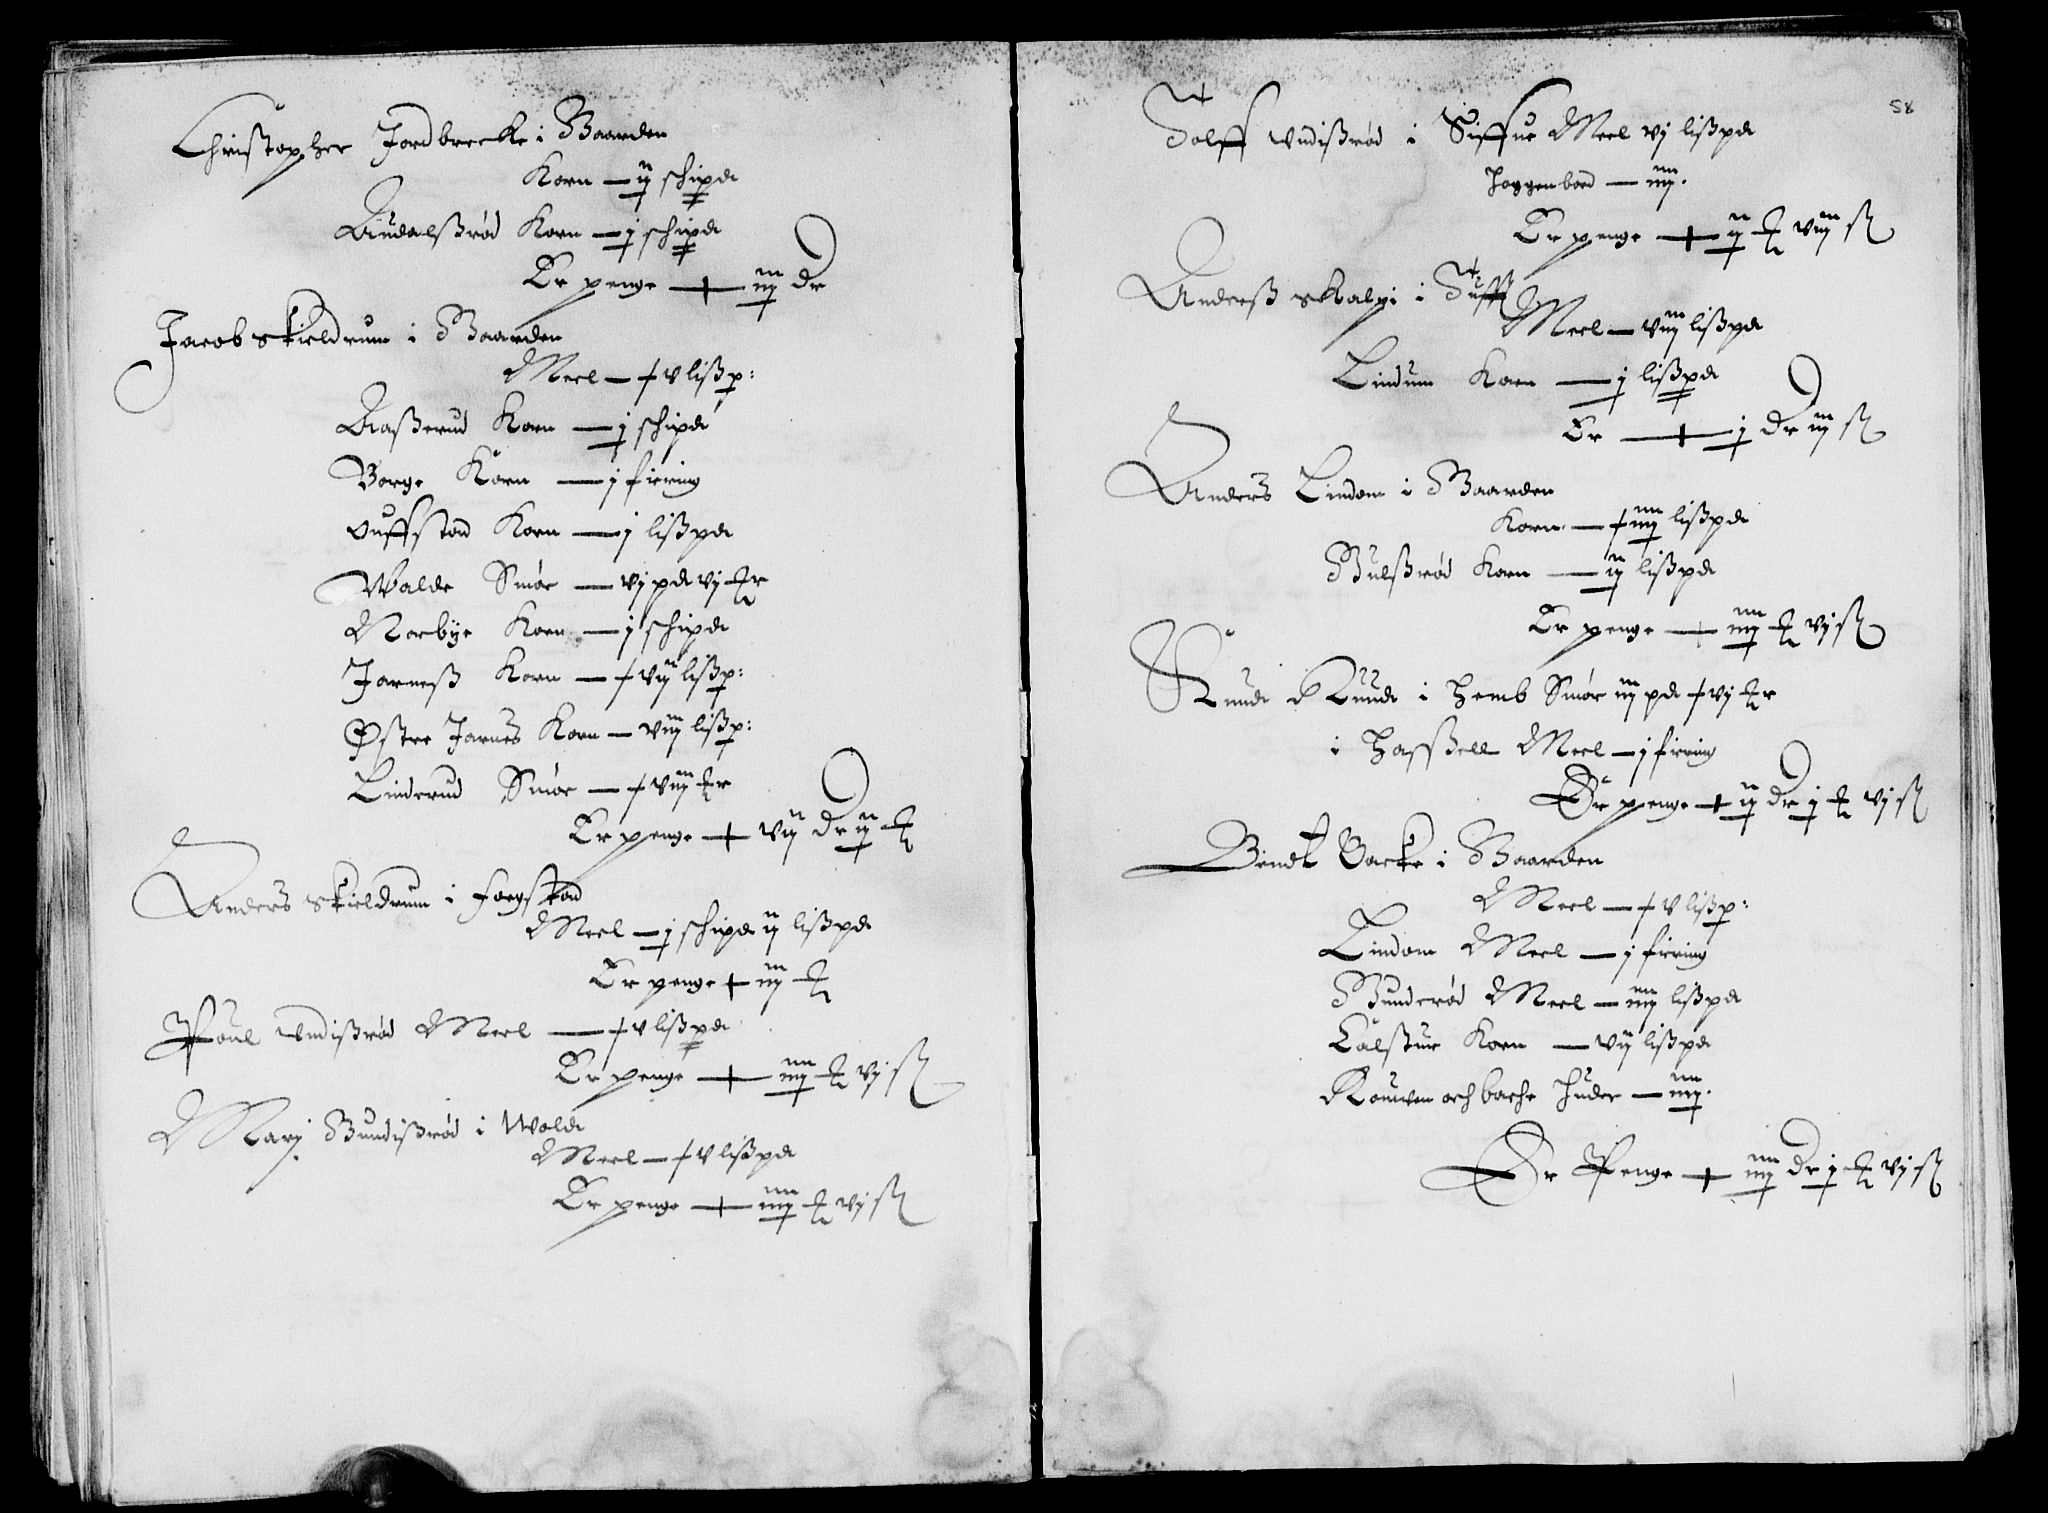 Christopher Jordbrecke i Gaarden
Korn — ij schipd
Audalßrød Korn — j schipd
Er penge — iij dr
Jacob skieldrum i Gaarden
Meel — ɟ v lißp:
Aaßerud Korn — j schipd
Borge Korn — j fiering
Ouffstad Korn — j lißpd
Walde Smør — vj pd vj ℔r
Norbye Korn — j schipd
Jarneß Korn — ɟ vij lißp:
Østre Jarnes Korn — viij lißp:
Linderud Smør — ɟ viij ℔r
Er penge — vij dr ij ℔
Anders skieldrum i Forgstad
Meel — j schipd ij lißpd
Er penge — iij ℔
Poul Undißrød Meel — ɟ v lißpd
Er penge — iiij ℔ vj ß
Marj Gundißrød i Wolde
Meel — ɟ v lißpd
Er penge — iiij ℔ vj ß
58
Tolff Undißrød i Siffue Meel vj lißpd
Hoggenbord — iiij.
Er penge — ij ℔ viij ß
Anderß skalpi i Tufft
Meel — viij lißpd
Lindum Korn — j lißpd
Er — j dr iij ß
Anders Lindom i Gaarden
Korn — ɟ iiij lißpd
Gulßrød Korn — ij lißpd
Er penge — iiij ℔ vj ß
Knud Ruud i Hemb Smør iij pd ɟ vj ℔r
i Haffßell Meel — j fiering
Er penge — ij dr j ℔ vj ß
Bendt Backe i Gaarden
Meel — ɟ v lißp:
Lindom Meel — j fiering
Gunderød Meel — iiij lißpd
Calstur Korn — vij lißpd
Rouwen och bache Huder — iiij.
Er Penge — iiij dr j ℔ vj ß